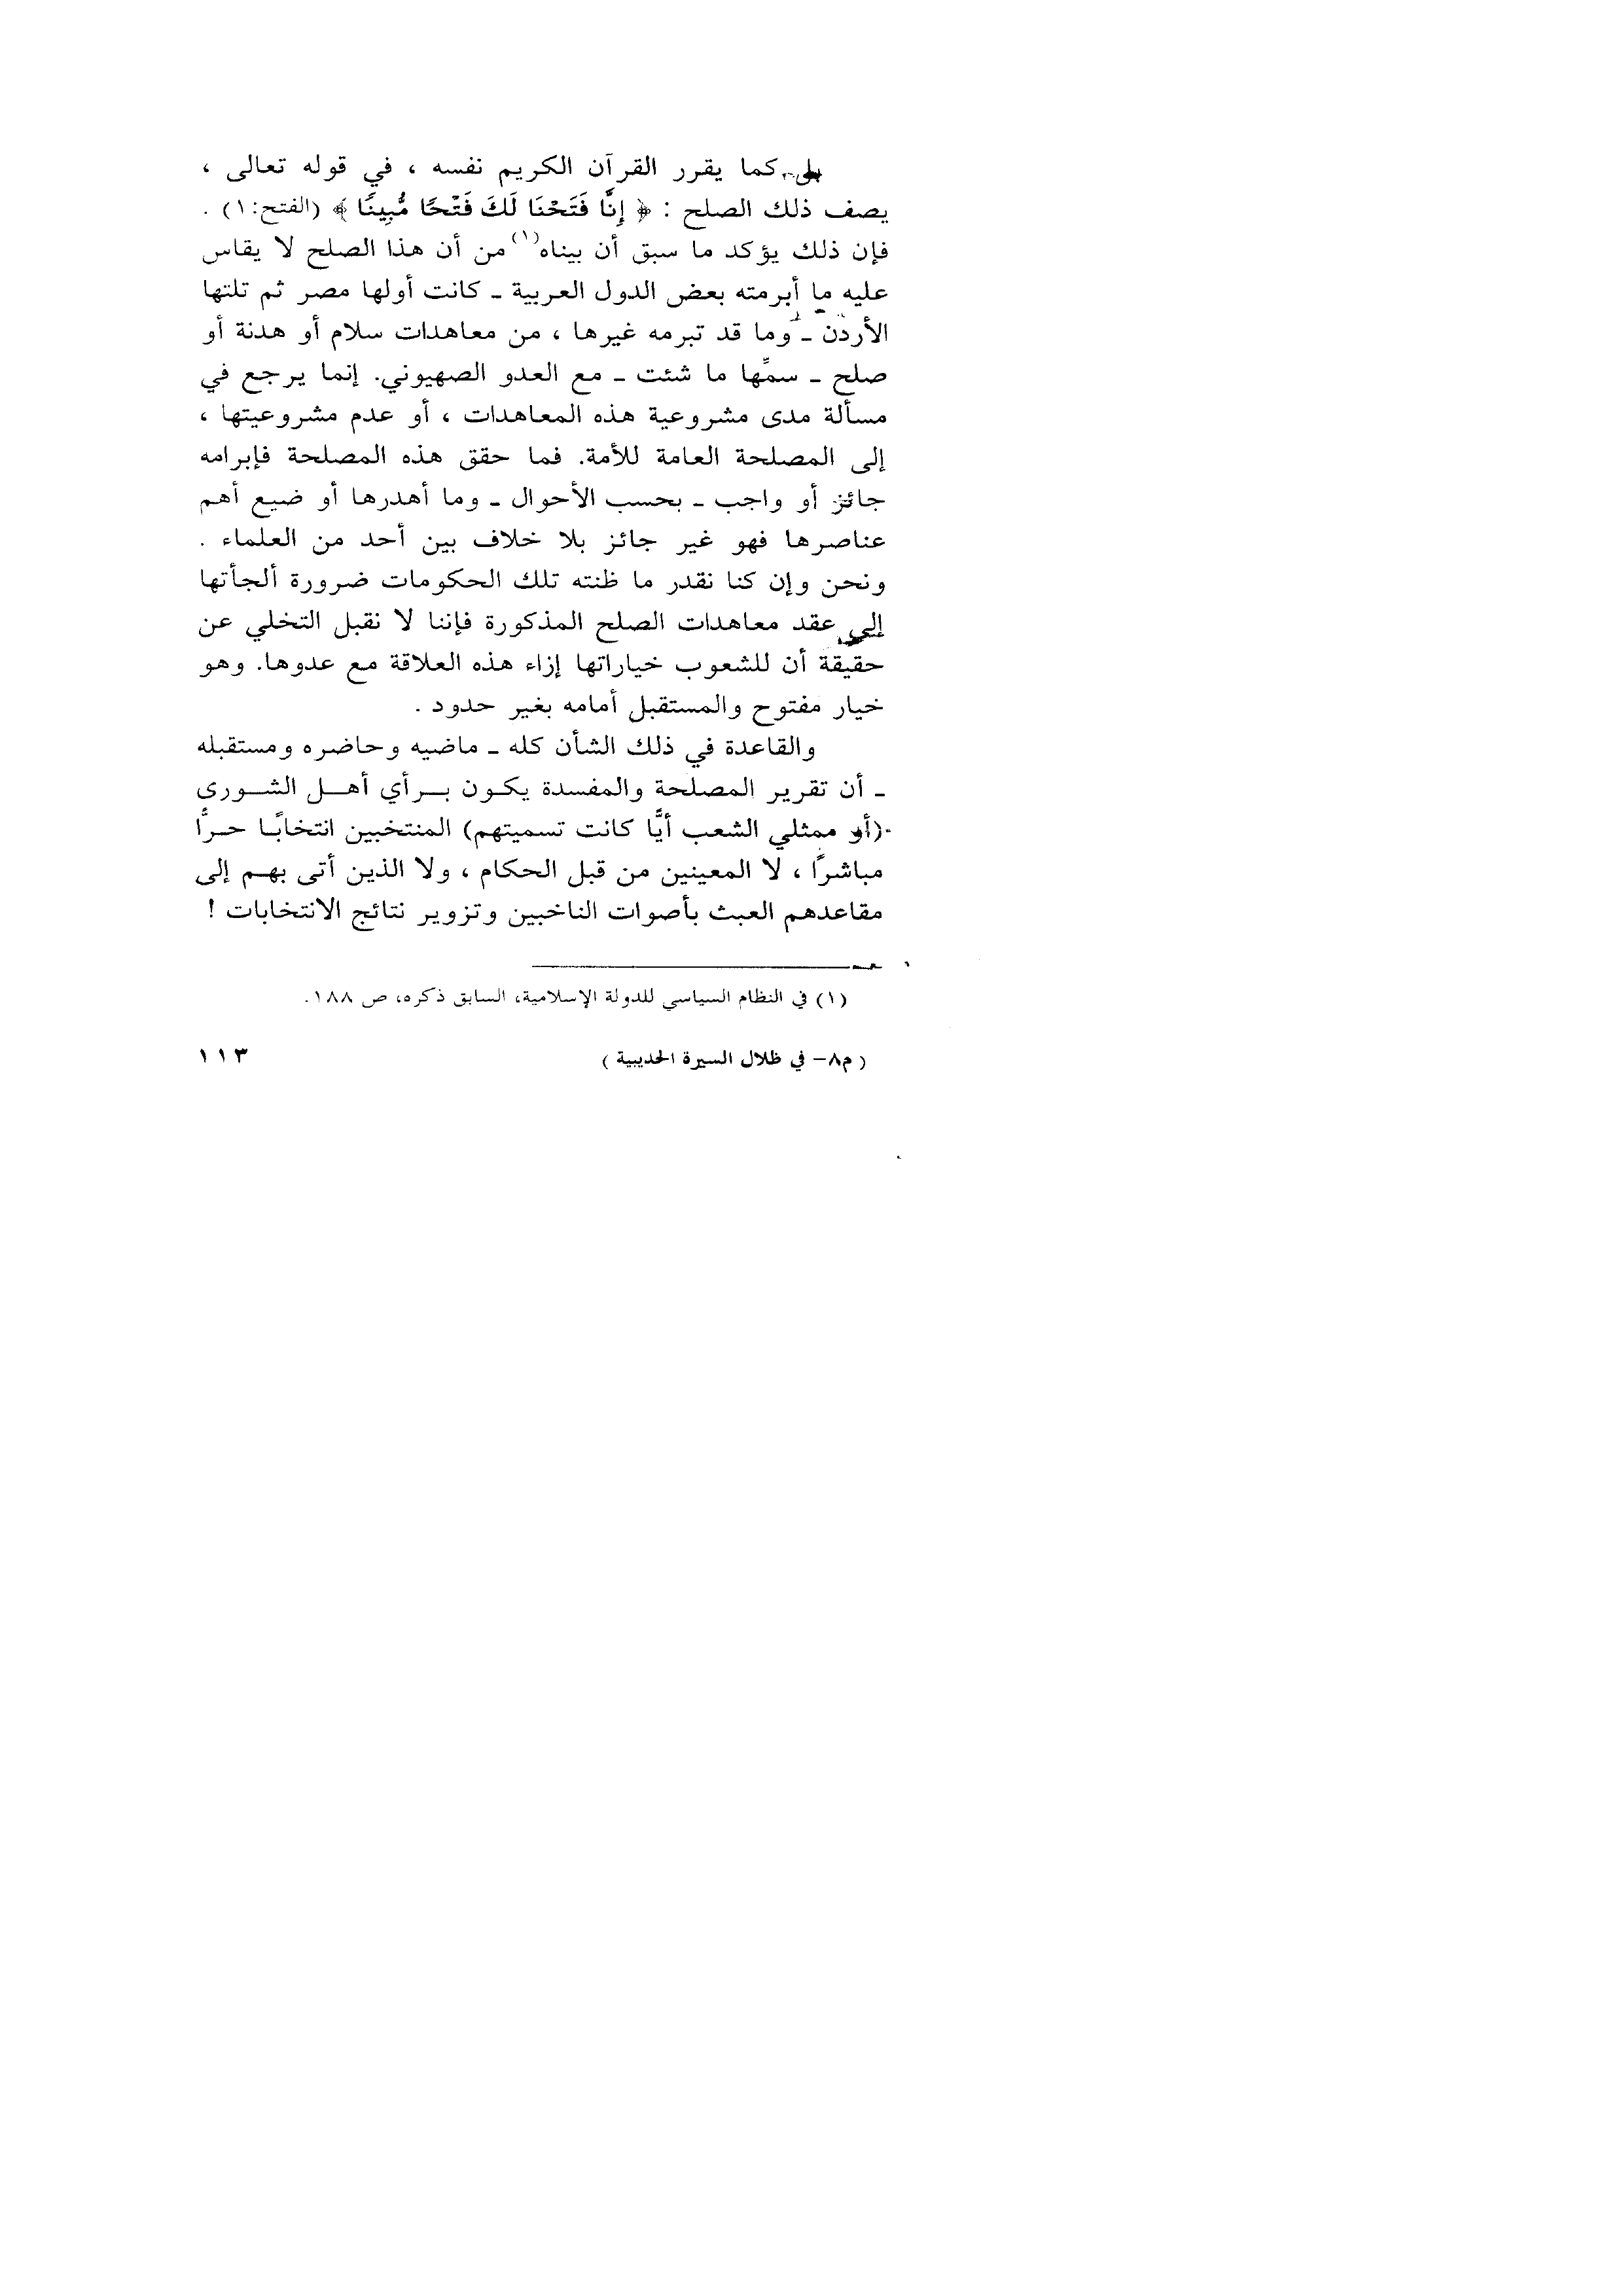 بلى، كما يقرر القرآن الكريم نفسه ، في قوله تعالى ،
يصف ذلك الصلح : ﴿ إِنَّا فَتَحْنَا لَكَ فَتْحًا مُّبِينًا ﴾ (الفتح:١) .
فإن ذلك يؤكد ما سبق أن بيناه(١) من أن هذا الصلح لا يقاس
عليه ما أبرمته بعض الدول العربية ـ كانت أولها مصر ثم تلتها
الأردن ـ وما قد تبرمه غيرها ، من معاهدات سلام أو هدنة أو
صلح ـ سمِّها ما شئت ـ مع العدو الصهيوني. إنما يرجع في
مسألة مدى مشروعية هذه المعاهدات ، أو عدم مشروعيتها ،
إلى المصلحة العامة للأمة. فما حقق هذه المصلحة فإبرامه
جائز أو واجب ـ بحسب الأحوال ـ وما أهدرها أو ضيع أهم
عناصرها فهو غير جائز بلا خلاف بين أحد من العلماء .
ونحن وإن كنا نقدر ما ظنته تلك الحكومات ضرورة ألجأتها
إلى عقد معاهدات الصلح المذكورة فإننا لا نقبل التخلي عن
حقيقة أن للشعوب خياراتها إزاء هذه العلاقة مع عدوها. وهو
خيار مفتوح والمستقبل أمامه بغير حدود .
والقاعدة في ذلك الشأن كله ـ ماضيه وحاضره ومستقبله
ـ أن تقرير المصلحة والمفسدة يكـون بـرأي أهـل الشـورى
(أو ممثلي الشعب أيًّا كانت تسميتهم) المنتخبين انتخابًـا حـرًّا
مباشرًا ، لا المعينين من قبل الحكام ، ولا الذين أتى بهـم إلى
مقاعدهم العبث بأصوات الناخبين وتزوير نتائج الانتخابات !
(١) في النظام السياسي للدولة الإسلامية، السابق ذكره، ص ١٨٨.
( م٨– في ظلال السيرة الحديبية )
١١٣